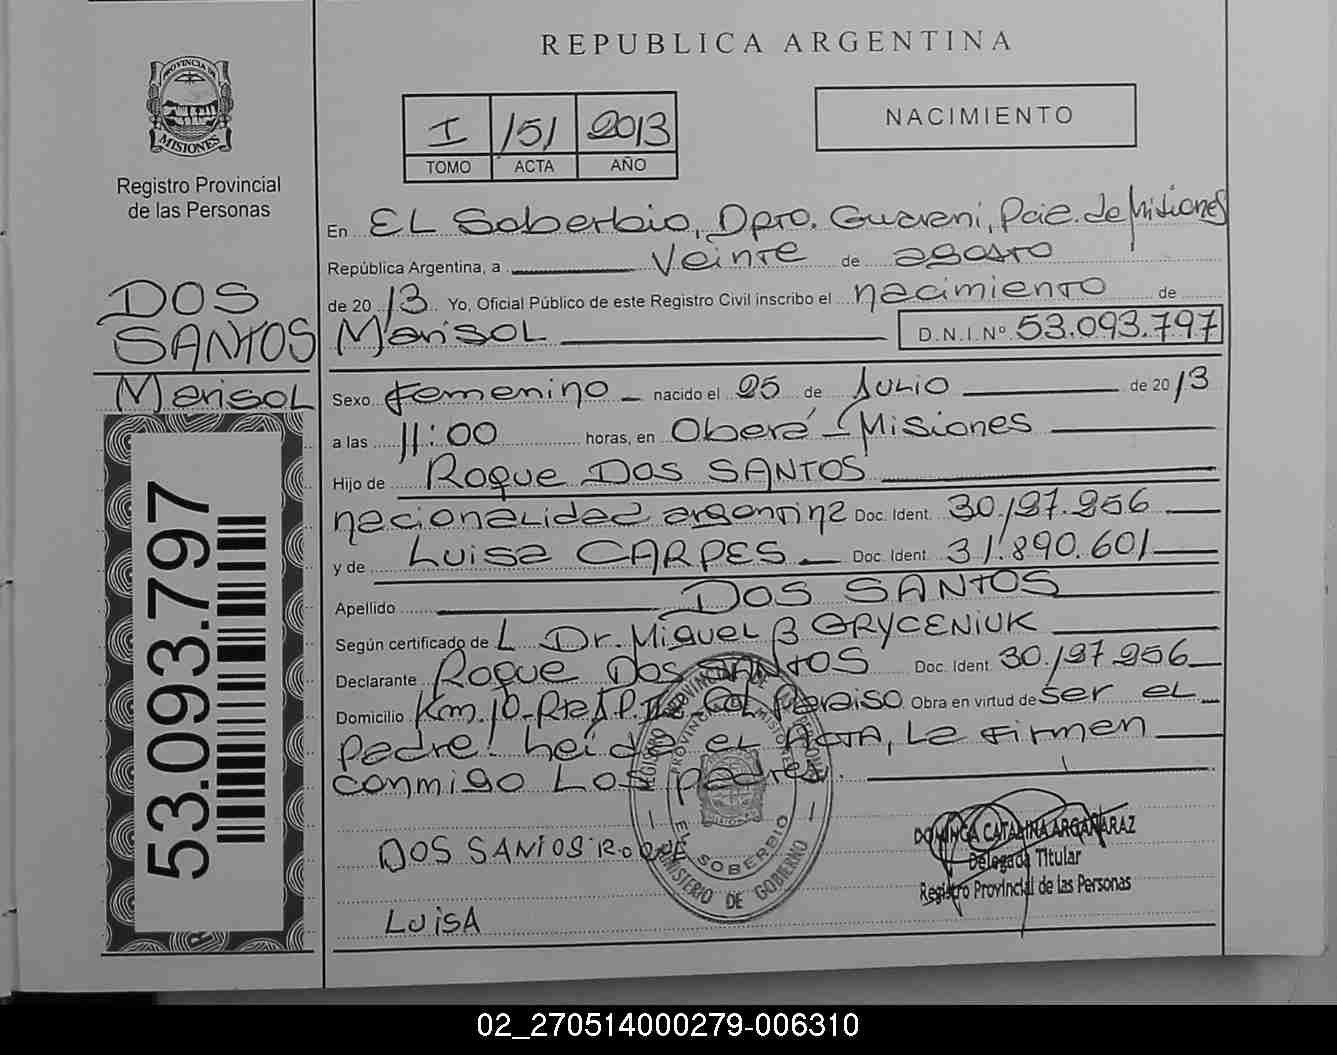 REPUBLICA ARGENTINA
PROVINCIA DE
MISIONES
Registro Provincial
de las Personas
I 151 2013
TOMO ACTA AÑO
NACIMIENTO
DOS
SANTOS
Marisol
53.093.797
En EL Soberbio, Dpto. Guarani, Pcia. de Misiones
República Argentina, a Veinte de agosto
de 2013 Yo, Oficial Público de este Registro Civil inscribo el nacimiento de
Marisol D.N.I.Nº 53.093.797
Sexo femenino nacido el 25 de Julio de 2013
a las 11:00 horas, en Oberá - Misiones
Hijo de Roque DOS SANTOS
nacionalidad argentina Doc. Ident. 30.197.256
y de Luisa CARPES Doc. Ident. 31.890.601
Apellido DOS SANTOS
Según certificado de L Dr. Miguel B GRYCENIUK
Declarante Roque Dos SANTOS Doc. Ident. 30.197.256
Domicilio Km. 10 Col Paraiso Obra en virtud de ser el
padre. Leida el ACTA, La firman
conmigo Los padres.
DOS SANTOS ROQUE
LUISA
EL SOBERBIO
MINISTERIO DE GOBIERNO
DOMINGA CATALINA ARGAÑARAZ
Delegada Titular
Registro Provincial de las Personas
02_270514000279-006310